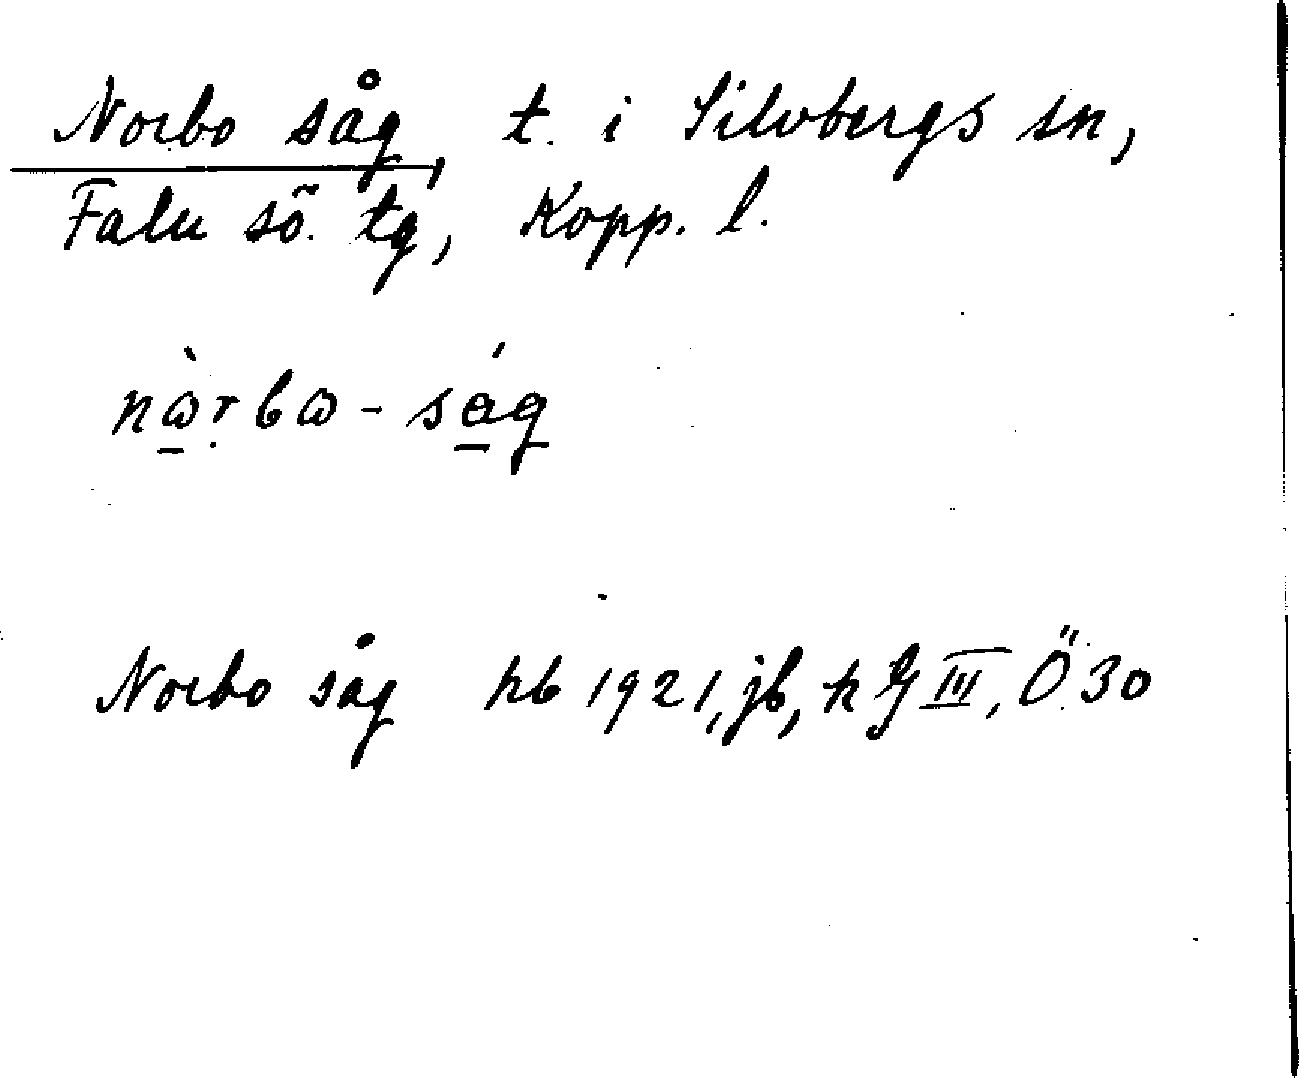 Norbo såg, t. i Silvbergs sn,
Falu sö. tg, Kopp. l.
nὼrbω-ság
Norbo såg hb 1921, jb, k G III, Ö 30